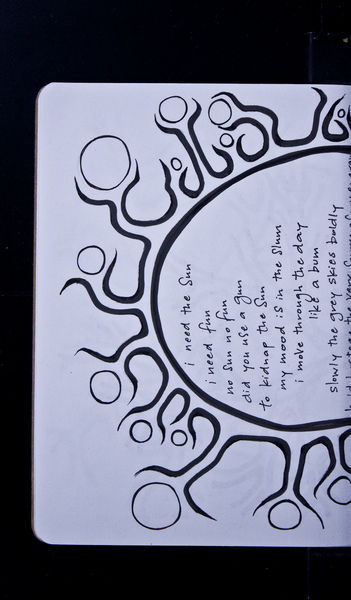 i need the Sun
i need fun
no sun no fun
did you use a gun
to kidnap the Sun
my mood is in the slum
i move through the day
like a bum
slowly the grey skies boldly